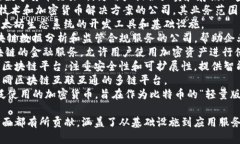 技术和加密货币解决方案的公司，其业务范围
太坊生态系统的开发工具和基础设施。
区块链数据分析和监管合规服务的公司，帮助企业
块链的金融服务，允许用户使用加密资产进行借
区块链平台，注重安全性和可扩展性，提供智能
同区块链及联互通的多链平台。
泛使用的加密货币，旨在作为比特币的“轻量版
面都有所贡献，涵盖了从基础设施到应用服务